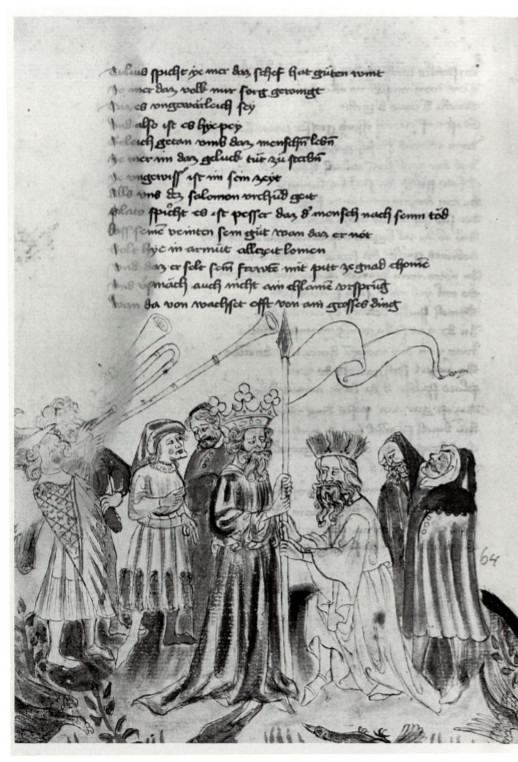 Julius spicht ye mer daz schef hat guten wint
Je mer daz volk mit sorg geringt
Daz es ungewärleich sey
Und also ist es hye pey
Geleich getan umb daz menschn lebn
Je mer im daz geluck tüt zu
Je ungewiss ist im sein zeyt
Alls uns dez salomon urchud geit
Plato spicht es ist pesser daz d mensch nach seinn tod
Lass seinē veinten sein güt wan daz er not
Solt hye in armüt allezeit
Und daz er solt sein frewnt mit pitt ze gnad chomē
Und vsmäch auch nicht ain chlainē vrsprūg
Wan da von wachset offt von ain grosses ding
64